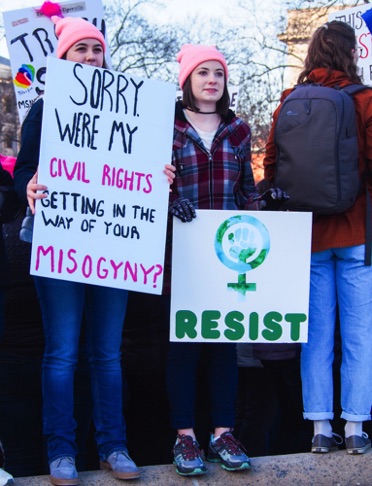 SORRY,
WERE MY
CIVIL RIGHTS
GETTING IN THE
WAY OF YOUR
MISOGYNY?
RESIST
THIS